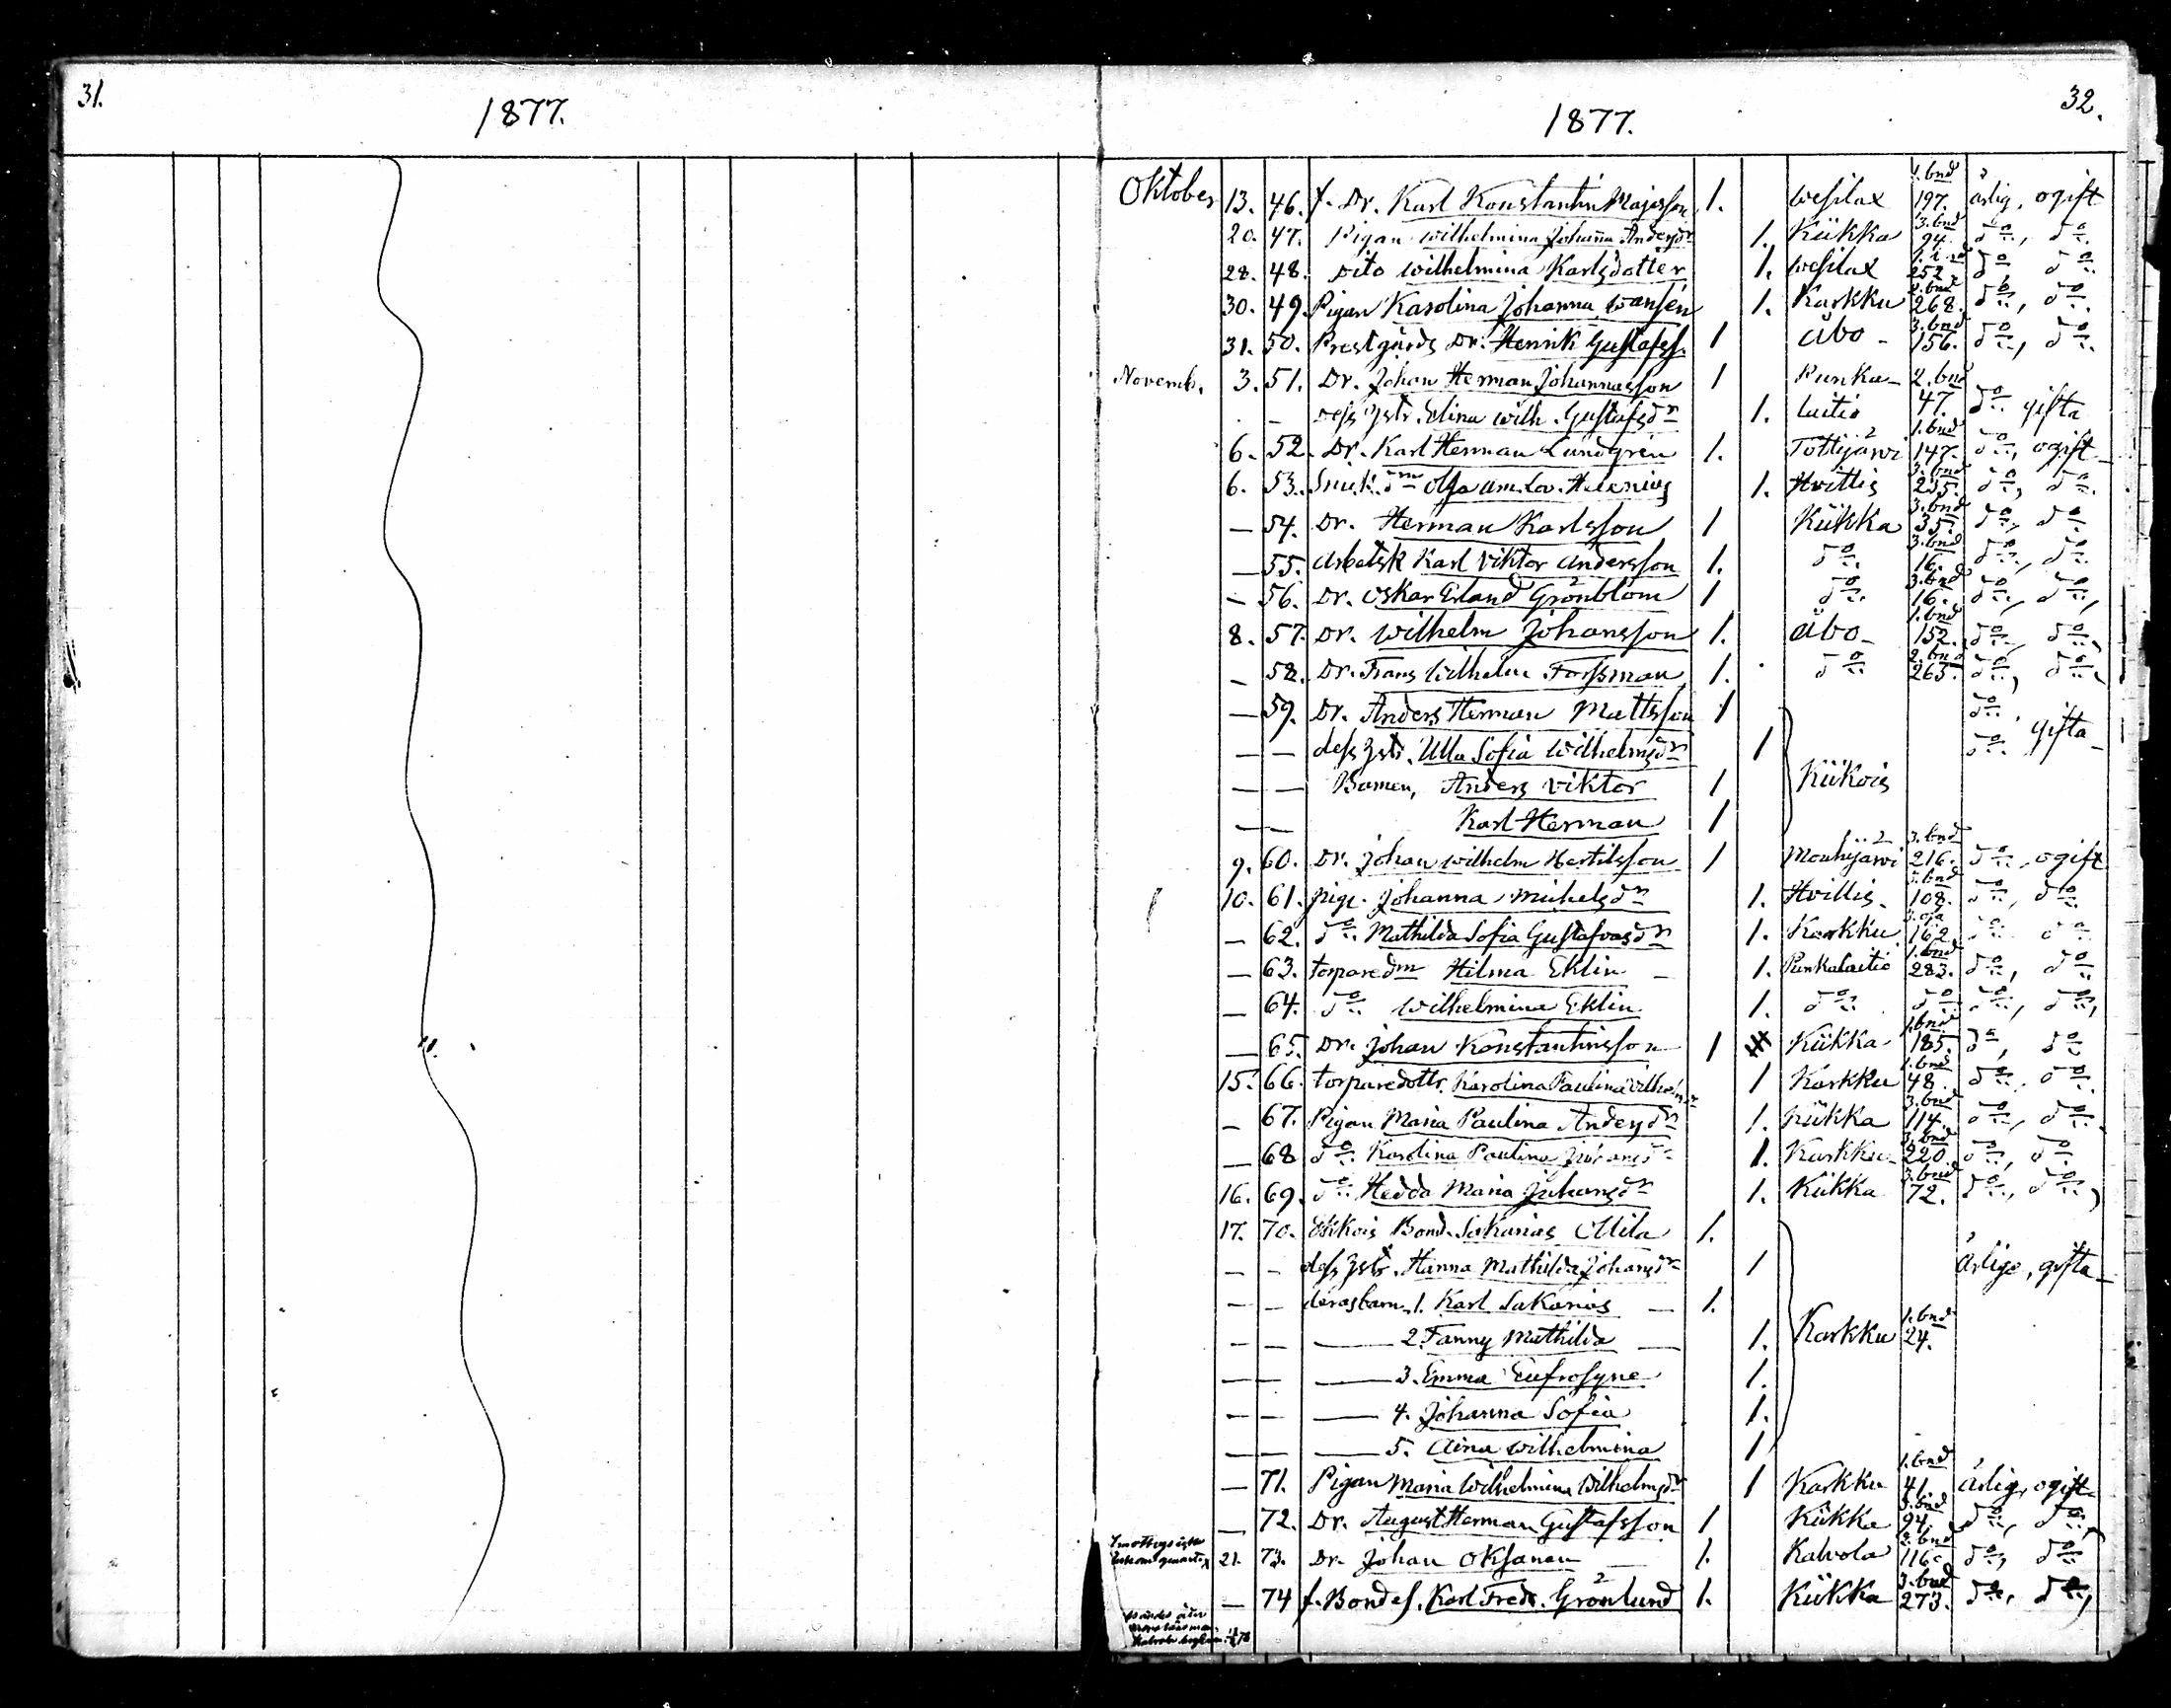 31.
1877.
1877.
32.
Oktober 13. 46. f. Dr. Karl Konstantin Majasson 1. Wesilax 1. bnd 197. ärlig, ogift
20. 47. Pigan Wilhelmina Johanna Andersdr 1. Kiikka 3. bnd 94. do, do
28. 48. Dito Wilhelmina Karlsdotter 1. Wesilax 252 do, do
30. 49. Pigan Karolina Johanna Wansén 1. Karkku 2. bnd 268. do, do
31. 50. Prestgårds Dr. Henrik Gustafss. 1 Åbo 3. bnd 156. do, do
Novemb. 3. 51. Dr. Johan Herman Johannasson 1 Punka- 2. bnd
- dess hstr. Elina Wilh. Gustafsdr 1. laitio 47. do gifta
6. 52. Dr. Karl Herman Lundgrén 1. Tottijärwi 1. bnd 147. do, ogift
6. 53. Olga Am. Lov. 1. Hvittis 3. bnd 255. do, do
— 54. Dr. Herman Karlsson 1 Kiikka 3. bnd 35. do, do
— 55. Arbetsk Karl Viktor Andersson 1. do 3. bnd 16. do, do
- 56. Dr. Oskar Erland Grönblom 1 do 3. bnd 16. do, do,
8. 57. Dr. Wilhelm Johansson 1. Åbo 1. bnd 152. do, do
— 58. Dr. Frans Wilhelm Forssman 1. do 2. bnd 263. do, do
— 59. Dr. Anders Herman Mattsson 1 do.
— — dess hstr. Ulla Sofia Wilhelmsdr 1 do. gifta
— — Barnen, Anders Viktor 1 Kiikois
— — Karl Herman 1
9. 60. Dr. Johan Wilhelm Hertilsson 1 Mouhijärwi 3. bnd 216. do, ogift
10. 61. pig. Johanna Mickelsdr 1. Hvittis 108. do, do
— 62. do Mathilda Sofia Gustafvasdr 1. Karkku 162 do do
— 63. torparedm Hilma Eklin 1. Punkalaitio 1. bnd 283. do, do
— 64. do Wilhelmina Eklin 1. do do do, do,
— 65. Dr. Johan Konstantinsson 1 Kiikka 1. bnd 185. do, do
15. 66. torparedottr. Karolina Paulina 1 Karkku 1. bnd 48. do, do
— 67. Pigan Maria Paulina Andersdr 1. Kiikka 3. bnd 114. do, do
— 68 do Karolina Paulina 1. Karkku 3. bnd 220 do, do
16. 69. do Hedda Maria Johansdr 1. Kiikka 3. bnd 72. do, do
17. 70. Bond. Sakarias Ollila 1.
— - dess hstr. Hanna Mathilda Johansdr 1 ärlige, gifta
- - deras barn 1. Karl Sakarias — 1.
- — — 2. Fanny Mathilda — 1. Karkku 1. bnd 24.
— — — 3. Emma Eufrosyne 1.
— — — 4. Johanna Sofia 1.
— — — 5. Aina Wilhelmina 1
— 71. Pigan Maria Wilhelmina Wilhelmsdr 1 Karkku 1. bnd 41. ärlig, ogift
— 72. Dr. August Herman Gustafsson 1 Kiikka 3. bnd 94. do, do,
21. 73. Dr. Johan Oksanen — 1. Kalvola 2. bnd 116. do, do
— 74 f. Bondes. Karl Fredr. Grönlund 1. Kiikka 3. bnd 273. do, do,